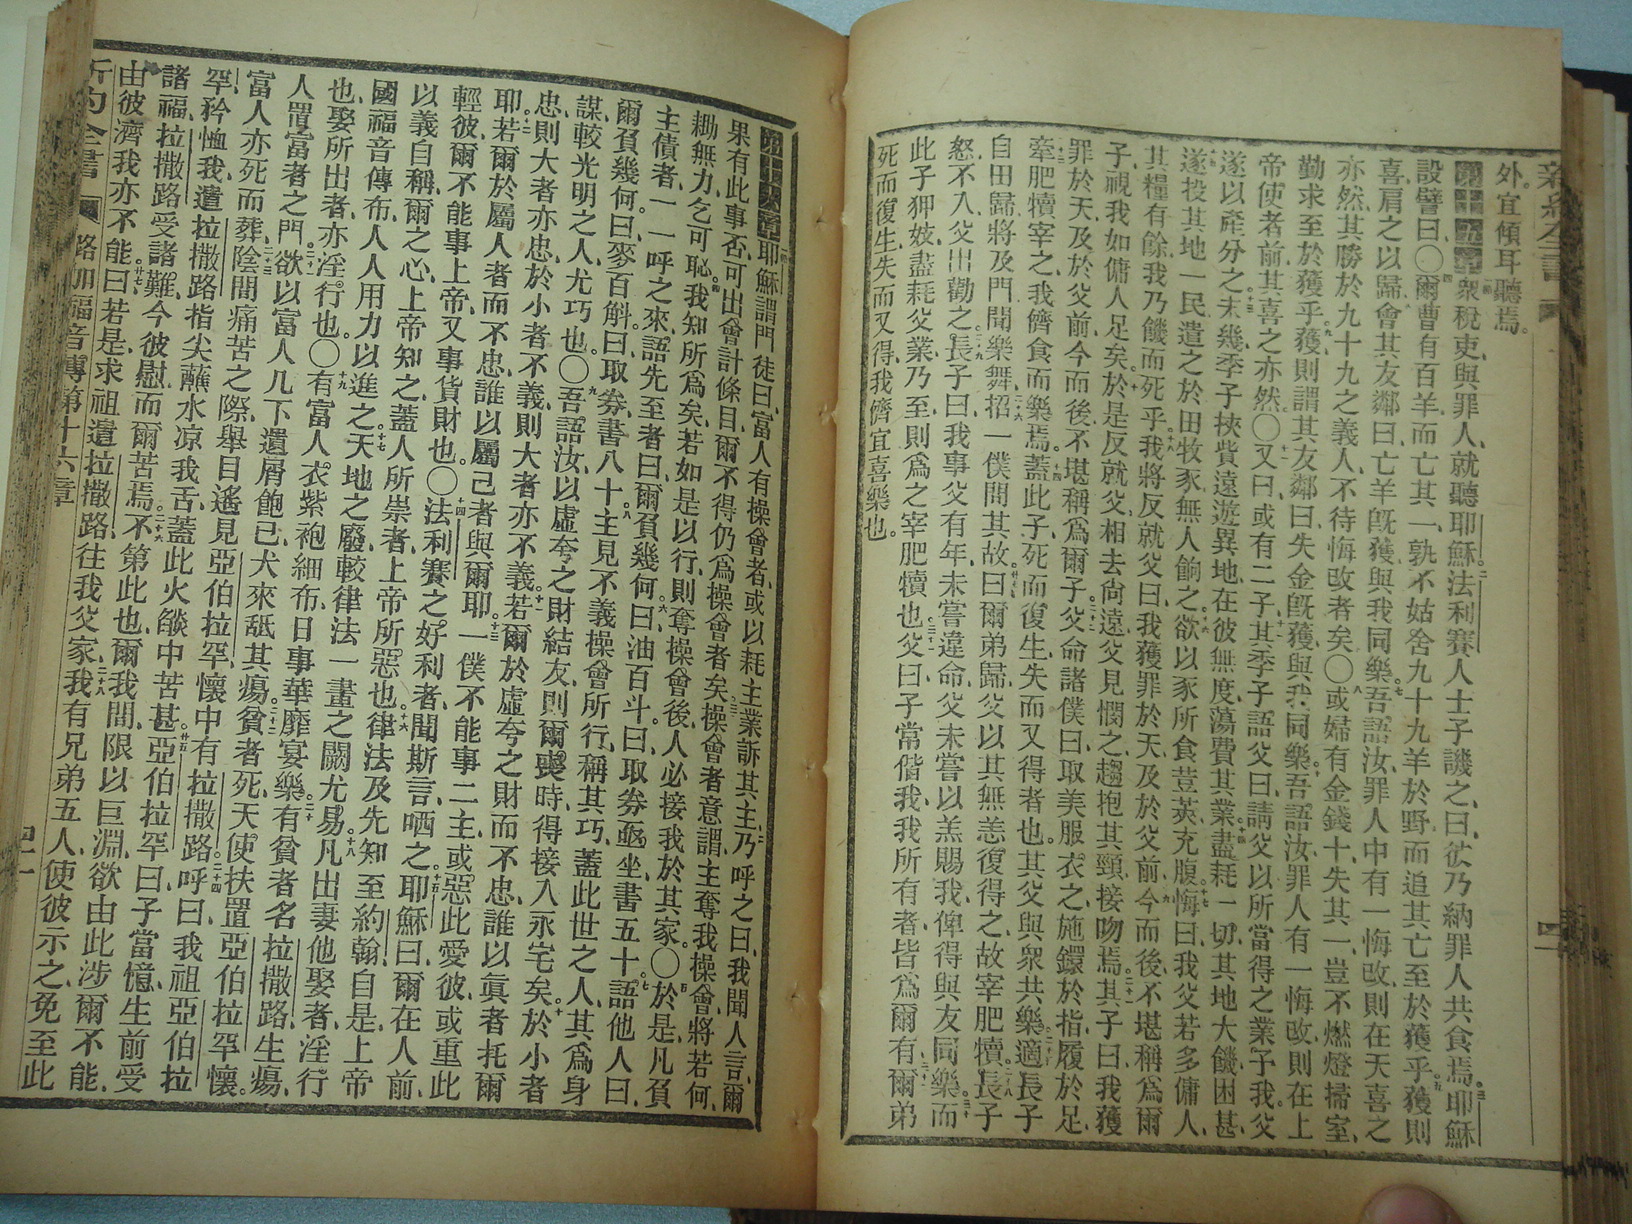 新約全書
四一
外、宜傾耳聽焉。
第十五章 衆稅吏與罪人、就聽耶穌、法利賽人士子譏之、曰、彼乃納罪人共食焉。耶穌
設譬曰、〇爾曹有百羊、而亡其一、孰不姑舍九十九羊於野、而追其亡、至於獲乎、獲則
喜、肩之以歸、會其友鄰曰、亡羊旣獲、與我同樂、吾語汝、罪人中有一悔改、則在天喜之
亦然、其勝於九十九之義人、不待悔改者矣、〇或婦有金錢十、失其一、豈不燃燈掃室、
勤求至於獲乎、獲則謂其友鄰曰、失金旣獲、與我同樂、吾語汝、罪人有一悔改、則在上
帝使者前、其喜之亦然。〇又曰、或有二子、其季子語父曰、請父以所當得之業予我、父
遂以產分之、未幾季子挾貲遠遊異地、在彼無度、蕩費其業、盡耗一切、其地大饑、困甚、
遂投其地一民、遣之於田牧豕、無人餉之、欲以豕所食荳莢充腹、悔曰、我父若多傭人、
其糧有餘、我乃饑而死乎、我將反就父曰、我獲罪於天、及於父前、今而後不堪稱爲爾
子、視我如傭人足矣、於是反就父、相去尙遠、父見憫之、趨抱其頸、接吻焉、其子曰、我獲
罪於天、及於父前、今而後不堪稱爲爾子、父命諸僕曰、取美服衣之、施鐶於指、履於足、
牽肥犢宰之、我儕食而樂焉、蓋此子死而復生、失而又得者也。其父與衆共樂、適長子
自田歸、將及門、聞樂舞、招一僕問其故、曰、爾弟歸、父以其無恙復得之、故宰肥犢、長子
怒不入、父出勸之、長子曰、我事父有年、未嘗違命、父未嘗以羔賜我、俾得與友同樂、而
此子狎妓、盡耗父業、乃至、則爲之宰肥犢也、父曰、子常偕我、我所有者皆爲爾有、爾弟
死而復生、失而又得、我儕宜喜樂也。
第十六章 耶穌謂門徒曰、富人有操會者、或以耗主業訴其主、乃呼之曰、我聞人言爾
果有此事否、可出會計條目、爾不得仍爲操會者矣、操會者意謂、主奪我操會、將若何、
鋤無力、乞可恥、我知所爲矣、若如是以行、則奪操會後、人必接我於其家。〇於是凡負
主債者、一一呼之來、語先至者曰、爾負幾何、曰、油百斗、曰、取券亟坐書五十、語他人曰、
爾負幾何、曰、麥百斛、曰、取券書八十、主見不義操會所行、稱其巧、蓋此世之人、其爲身
謀、較光明之人尤巧也。〇吾語汝、以虛夸之財結友、則爾喪時、得接入永宅矣、於小者
忠、則大者亦忠、於小者不義、則大者亦不義、若爾於虛夸之財而不忠、誰以眞者托爾
耶、若爾於屬人者而不忠、誰以屬己者與爾耶、一僕不能事二主、或惡此愛彼、或重此
輕彼、爾不能事上帝、又事貨財也。〇法利賽之好利者、聞斯言哂之、耶穌曰、爾在人前、
以義自稱、爾之心、上帝知之、蓋人所崇者、上帝所惡也、律法及先知至約翰、自是上帝
國福音傳布、人人用力以進之、天地之廢、較律法一畫之闕尤易、凡出妻他娶者、淫行
也、娶所出者、亦淫行也。〇有富人、衣紫袍細布、日事華靡宴樂、有貧者名拉撒路、生瘍、
人置富者之門、欲以富人几下遺屑飽己、犬來舐其瘍、貧者死、天使扶置亞伯拉罕懷、
富人亦死而葬、陰間痛苦之際、舉目遙見亞伯拉罕、懷中有拉撒路、呼曰、我祖亞伯拉
罕、矜恤我、遣拉撒路、指尖蘸水凉我舌、蓋此火燄中苦甚、亞伯拉罕曰、子當憶生前受
諸福、拉撒路受諸難、今彼慰而爾苦焉、不第此也、爾我間、限以巨淵、欲由此涉爾不能、
由彼濟我亦不能、曰、若是求祖遣拉撒路、往我父家、我有兄弟五人、使彼示之、免至此
新約全書
路加福音傳第十六章
四十一